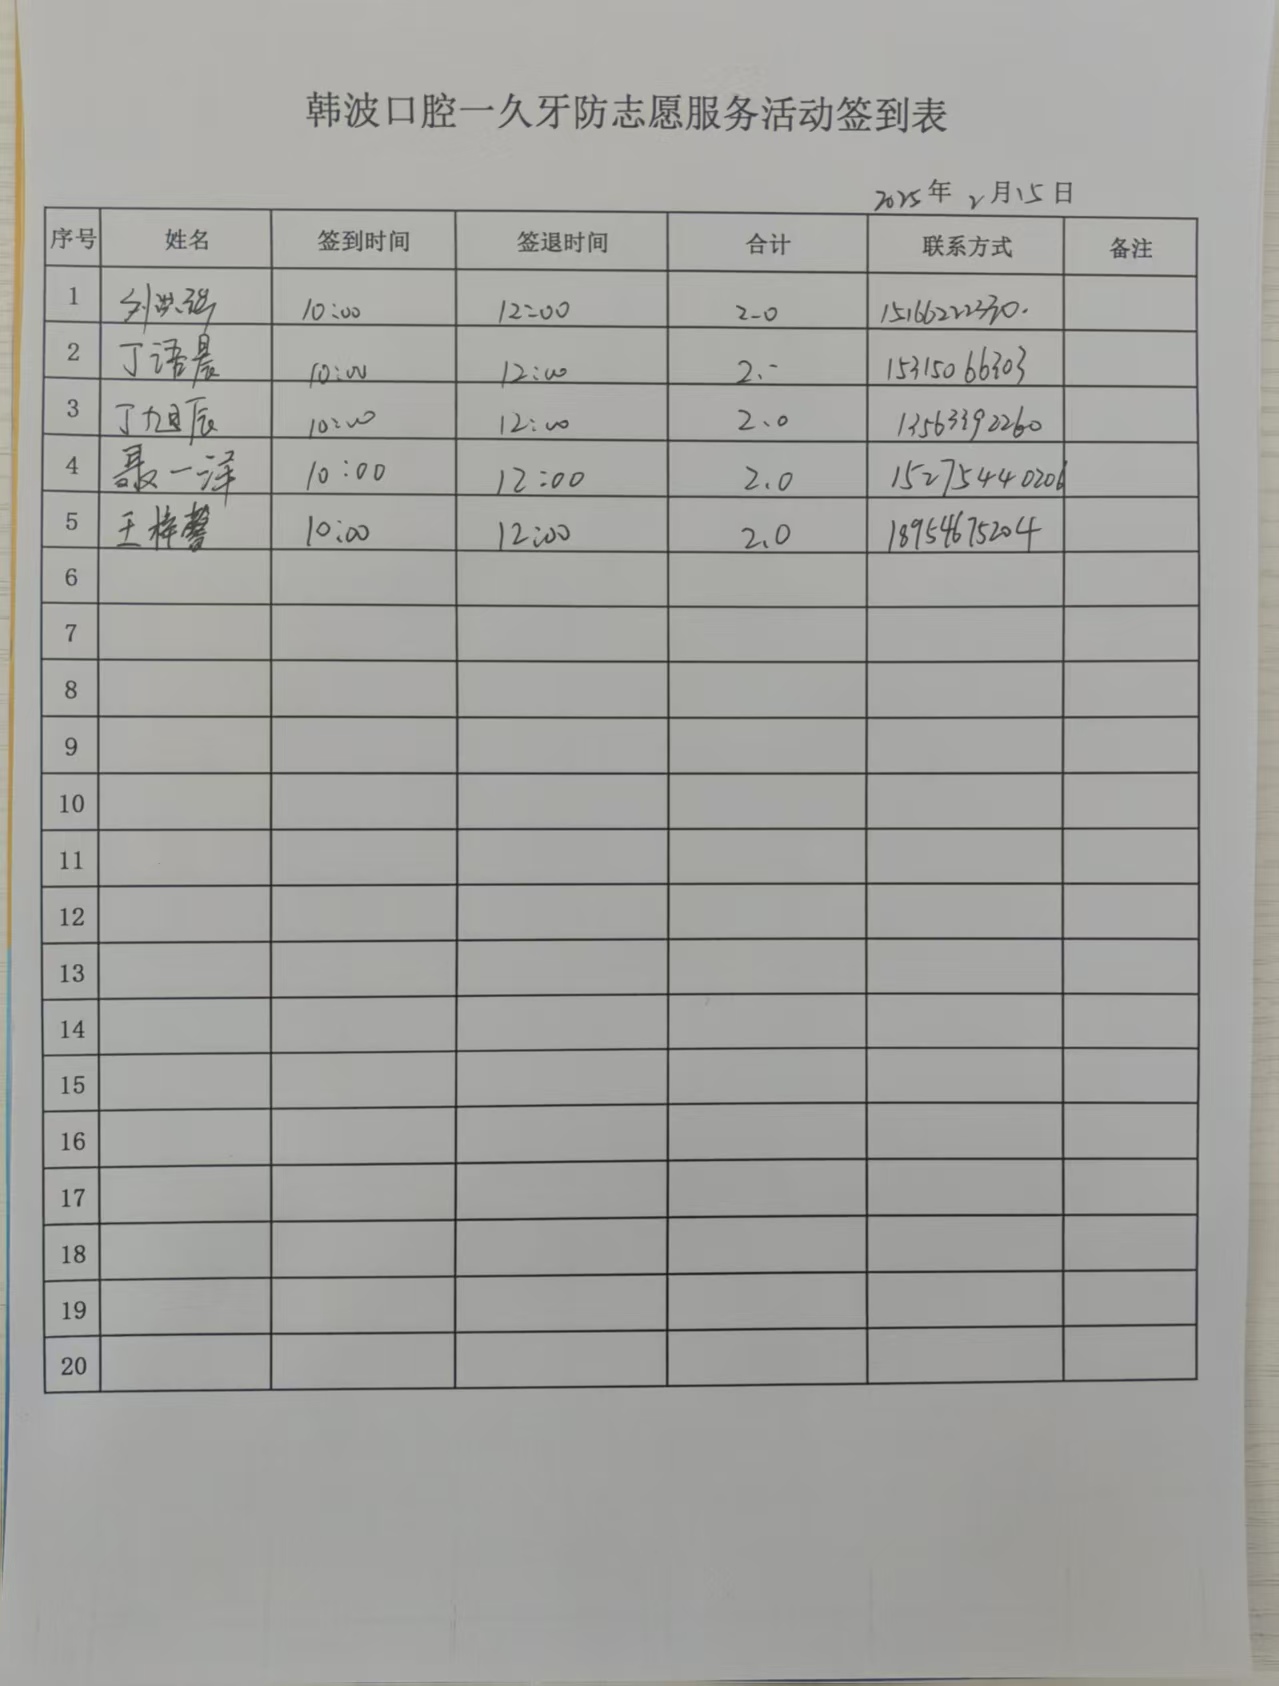 韩波口腔一久牙防志愿服务活动签到表
2025年 2月15日
序号 姓名 签到时间 签退时间 合计 联系方式 备注
1 刘洪强 10:00 12:00 2-0
2 丁语晨 10:00 12:00 2.- 15315066303
3 丁旭辰 10:00 12:00 2.0 13563392260
4 聂一洋 10:00 12:00 2.0 15275440206
5 王梓馨 10:00 12:00 2.0 18954675204
6
7
8
9
10
11
12
13
14
15
16
17
18
19
20